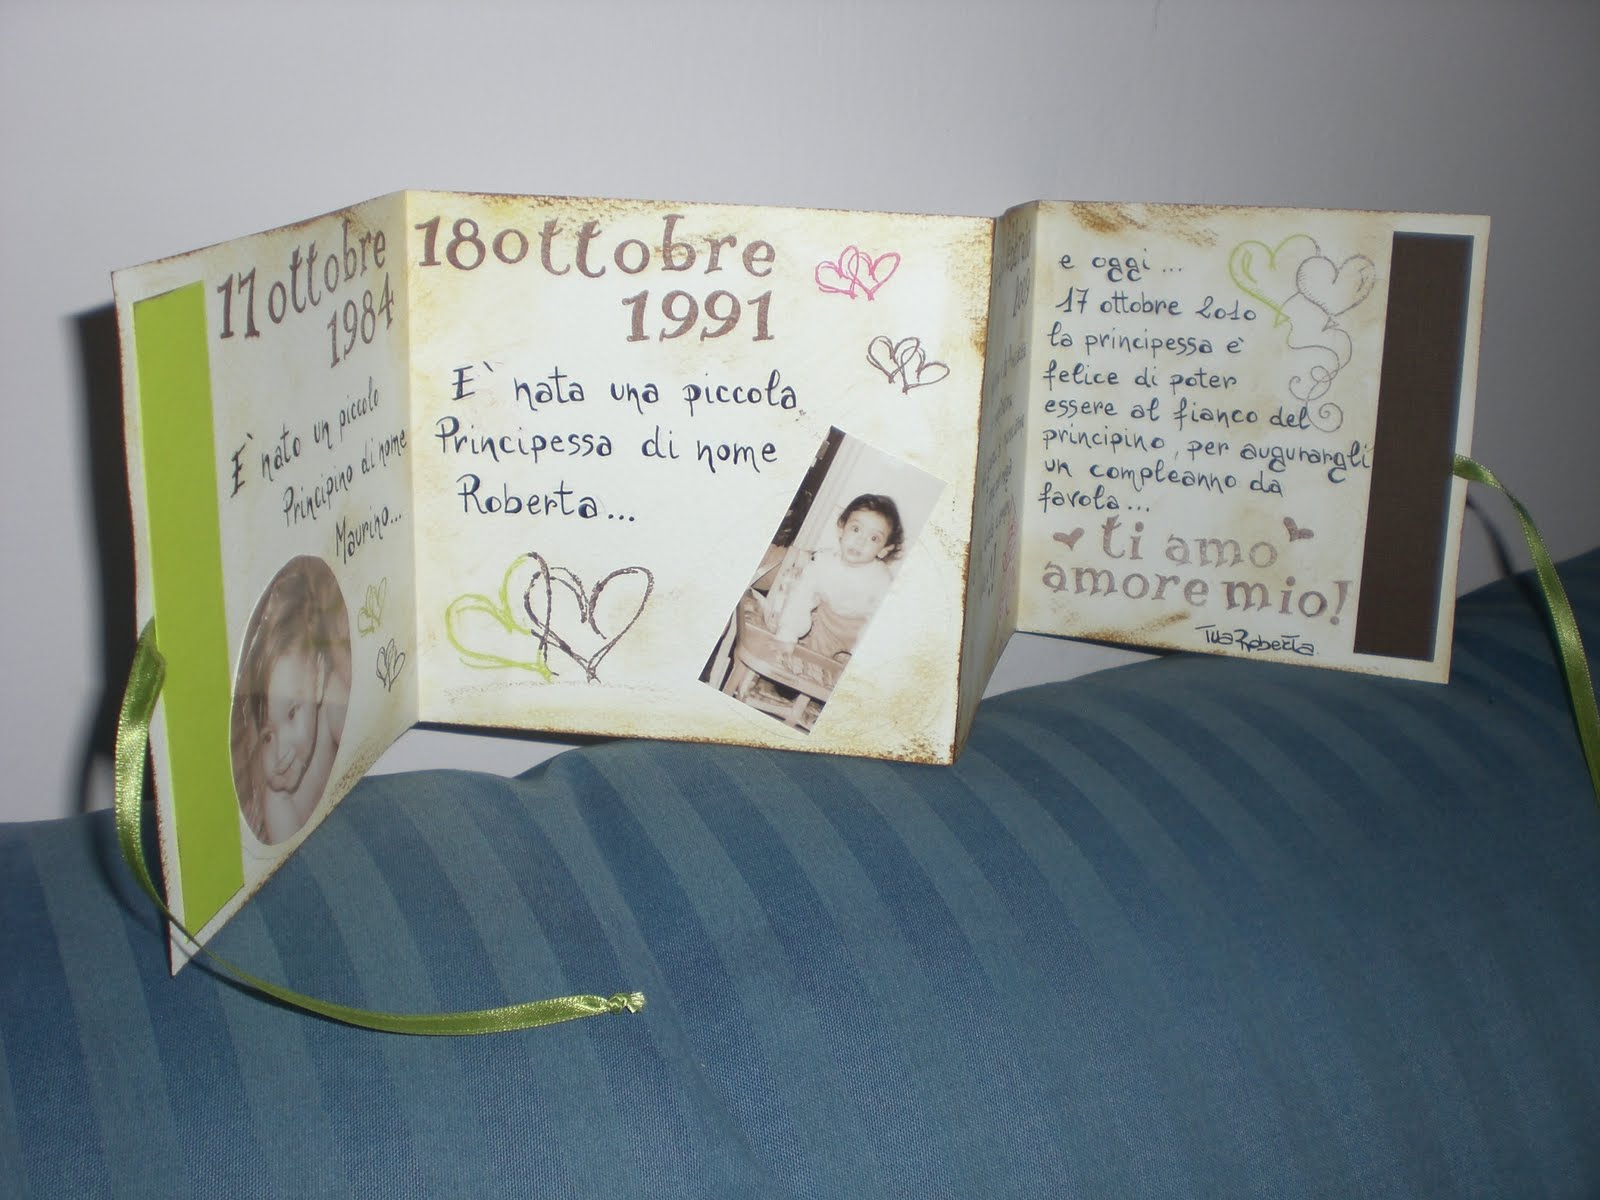 17 ottobre
1984
E' nato un piccolo
Principino di nome
Maurino...
18 ottobre
1991
E' nata una piccola
Principessa di nome
Roberta...
e oggi...
17 ottobre 2010
la principessa è
felice di poter
essere al fianco del
principino, per augurargli
un compleanno da
favola...
ti amo
amore mio!
Tua Roberta